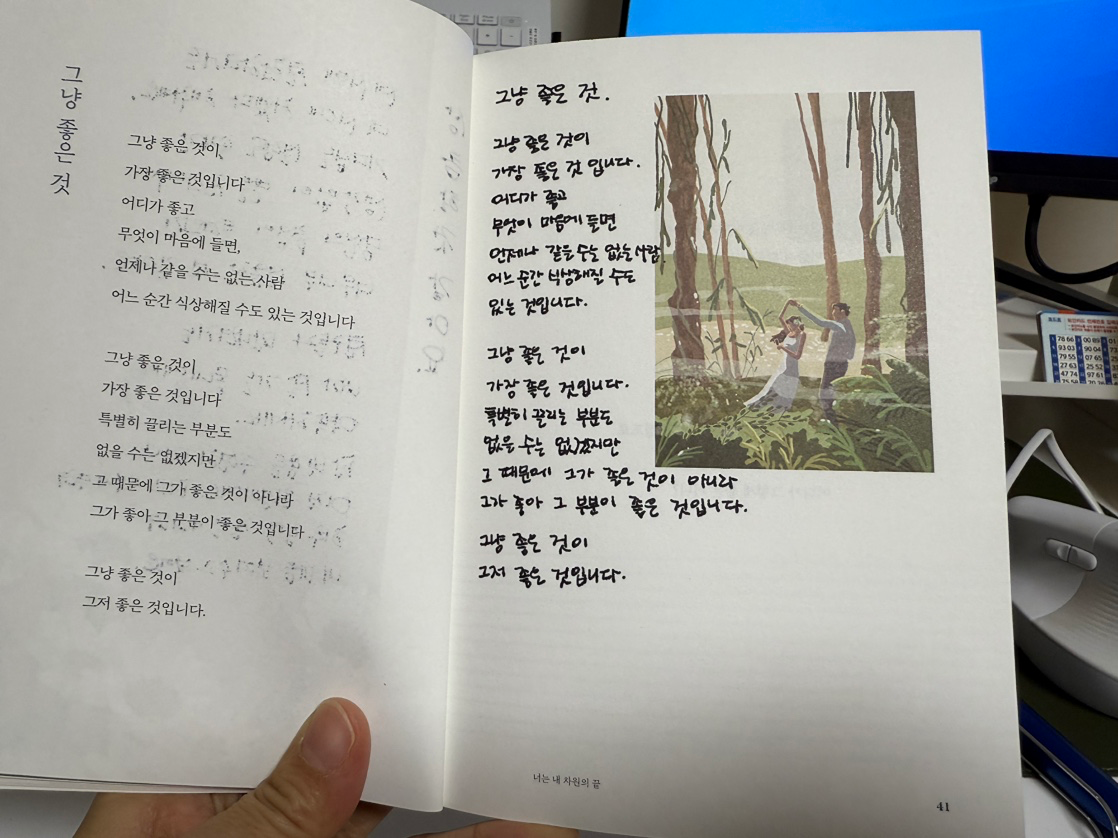 그냥 좋은 것
그냥 좋은 것이
가장 좋은 것입니다
어디가 좋고
무엇이 마음에 들면,
언제나 같을 수는 없는 사람
어느 순간 식상해질 수도 있는 것입니다
그냥 좋은 것이
가장 좋은 것입니다
특별히 끌리는 부분도
없을 수는 없겠지만
그 때문에 그가 좋은 것이 아니라
그가 좋아 그 부분이 좋은 것입니다
그냥 좋은 것이
그저 좋은 것입니다.
그냥 좋은 것.
그냥 좋은 것이
가장 좋은 것 입니다.
어디가 좋고
무엇이 마음에 들면
언제나 같을 수는 없는 사람
어느 순간 식상해질 수도
있는 것입니다.
그냥 좋은 것이
가장 좋은 것입니다.
특별히 끌리는 부분도
없을 수는 없겠지만
그 때문에 그가 좋은 것이 아니라
그가 좋아 그 부분이 좋은 것입니다.
그냥 좋은 것이
그저 좋은 것입니다.
너는 내 차원의 끝
41